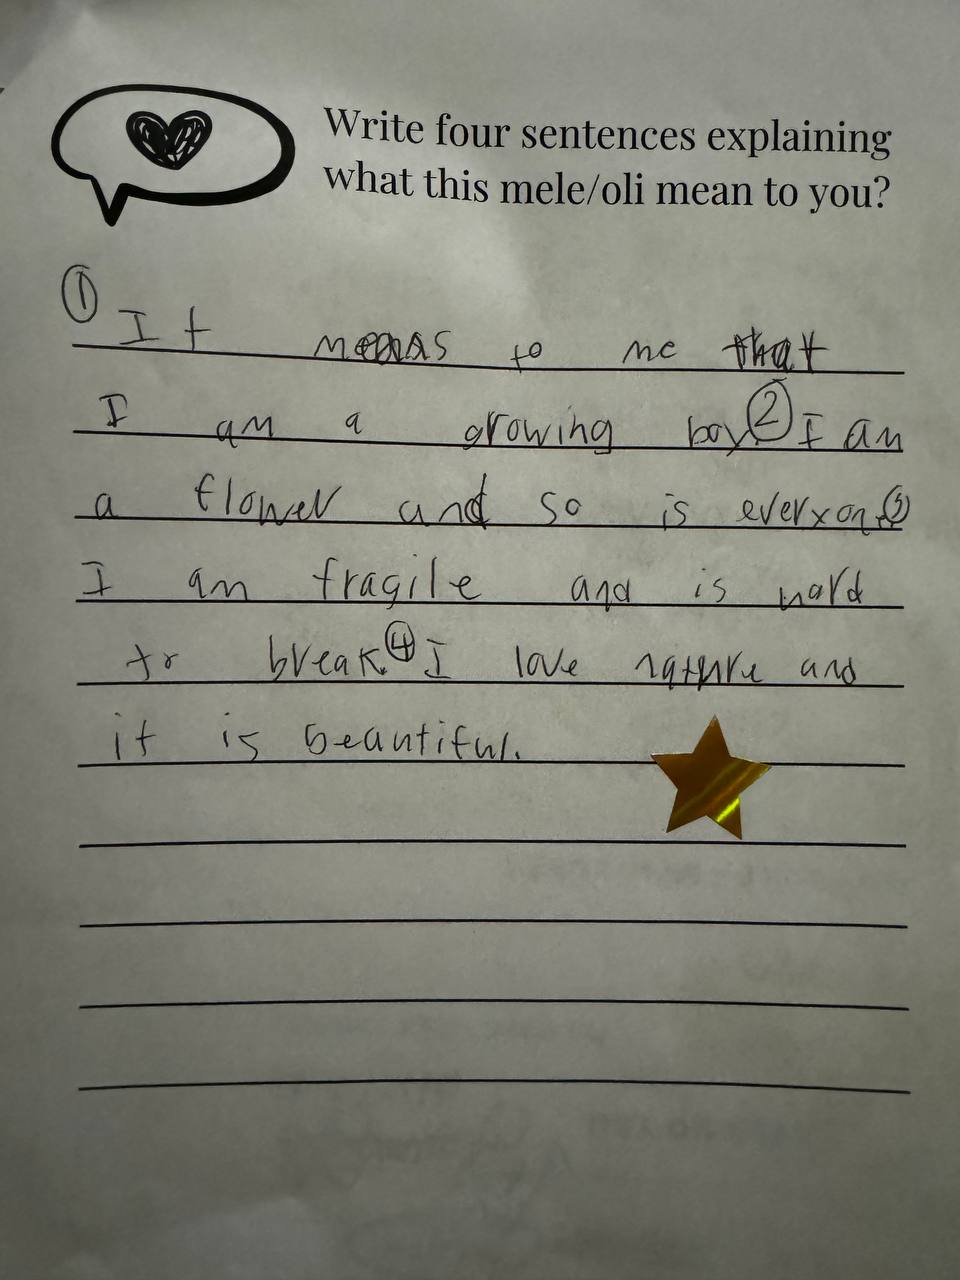 Write four sentences explaining
what this mele/oli mean to you?
① It means to me that
I am a growing boy. ② I am
a flower and so is everyone ③
I am fragile and is hard
to break. ④ I love nature and
it is beautiful.